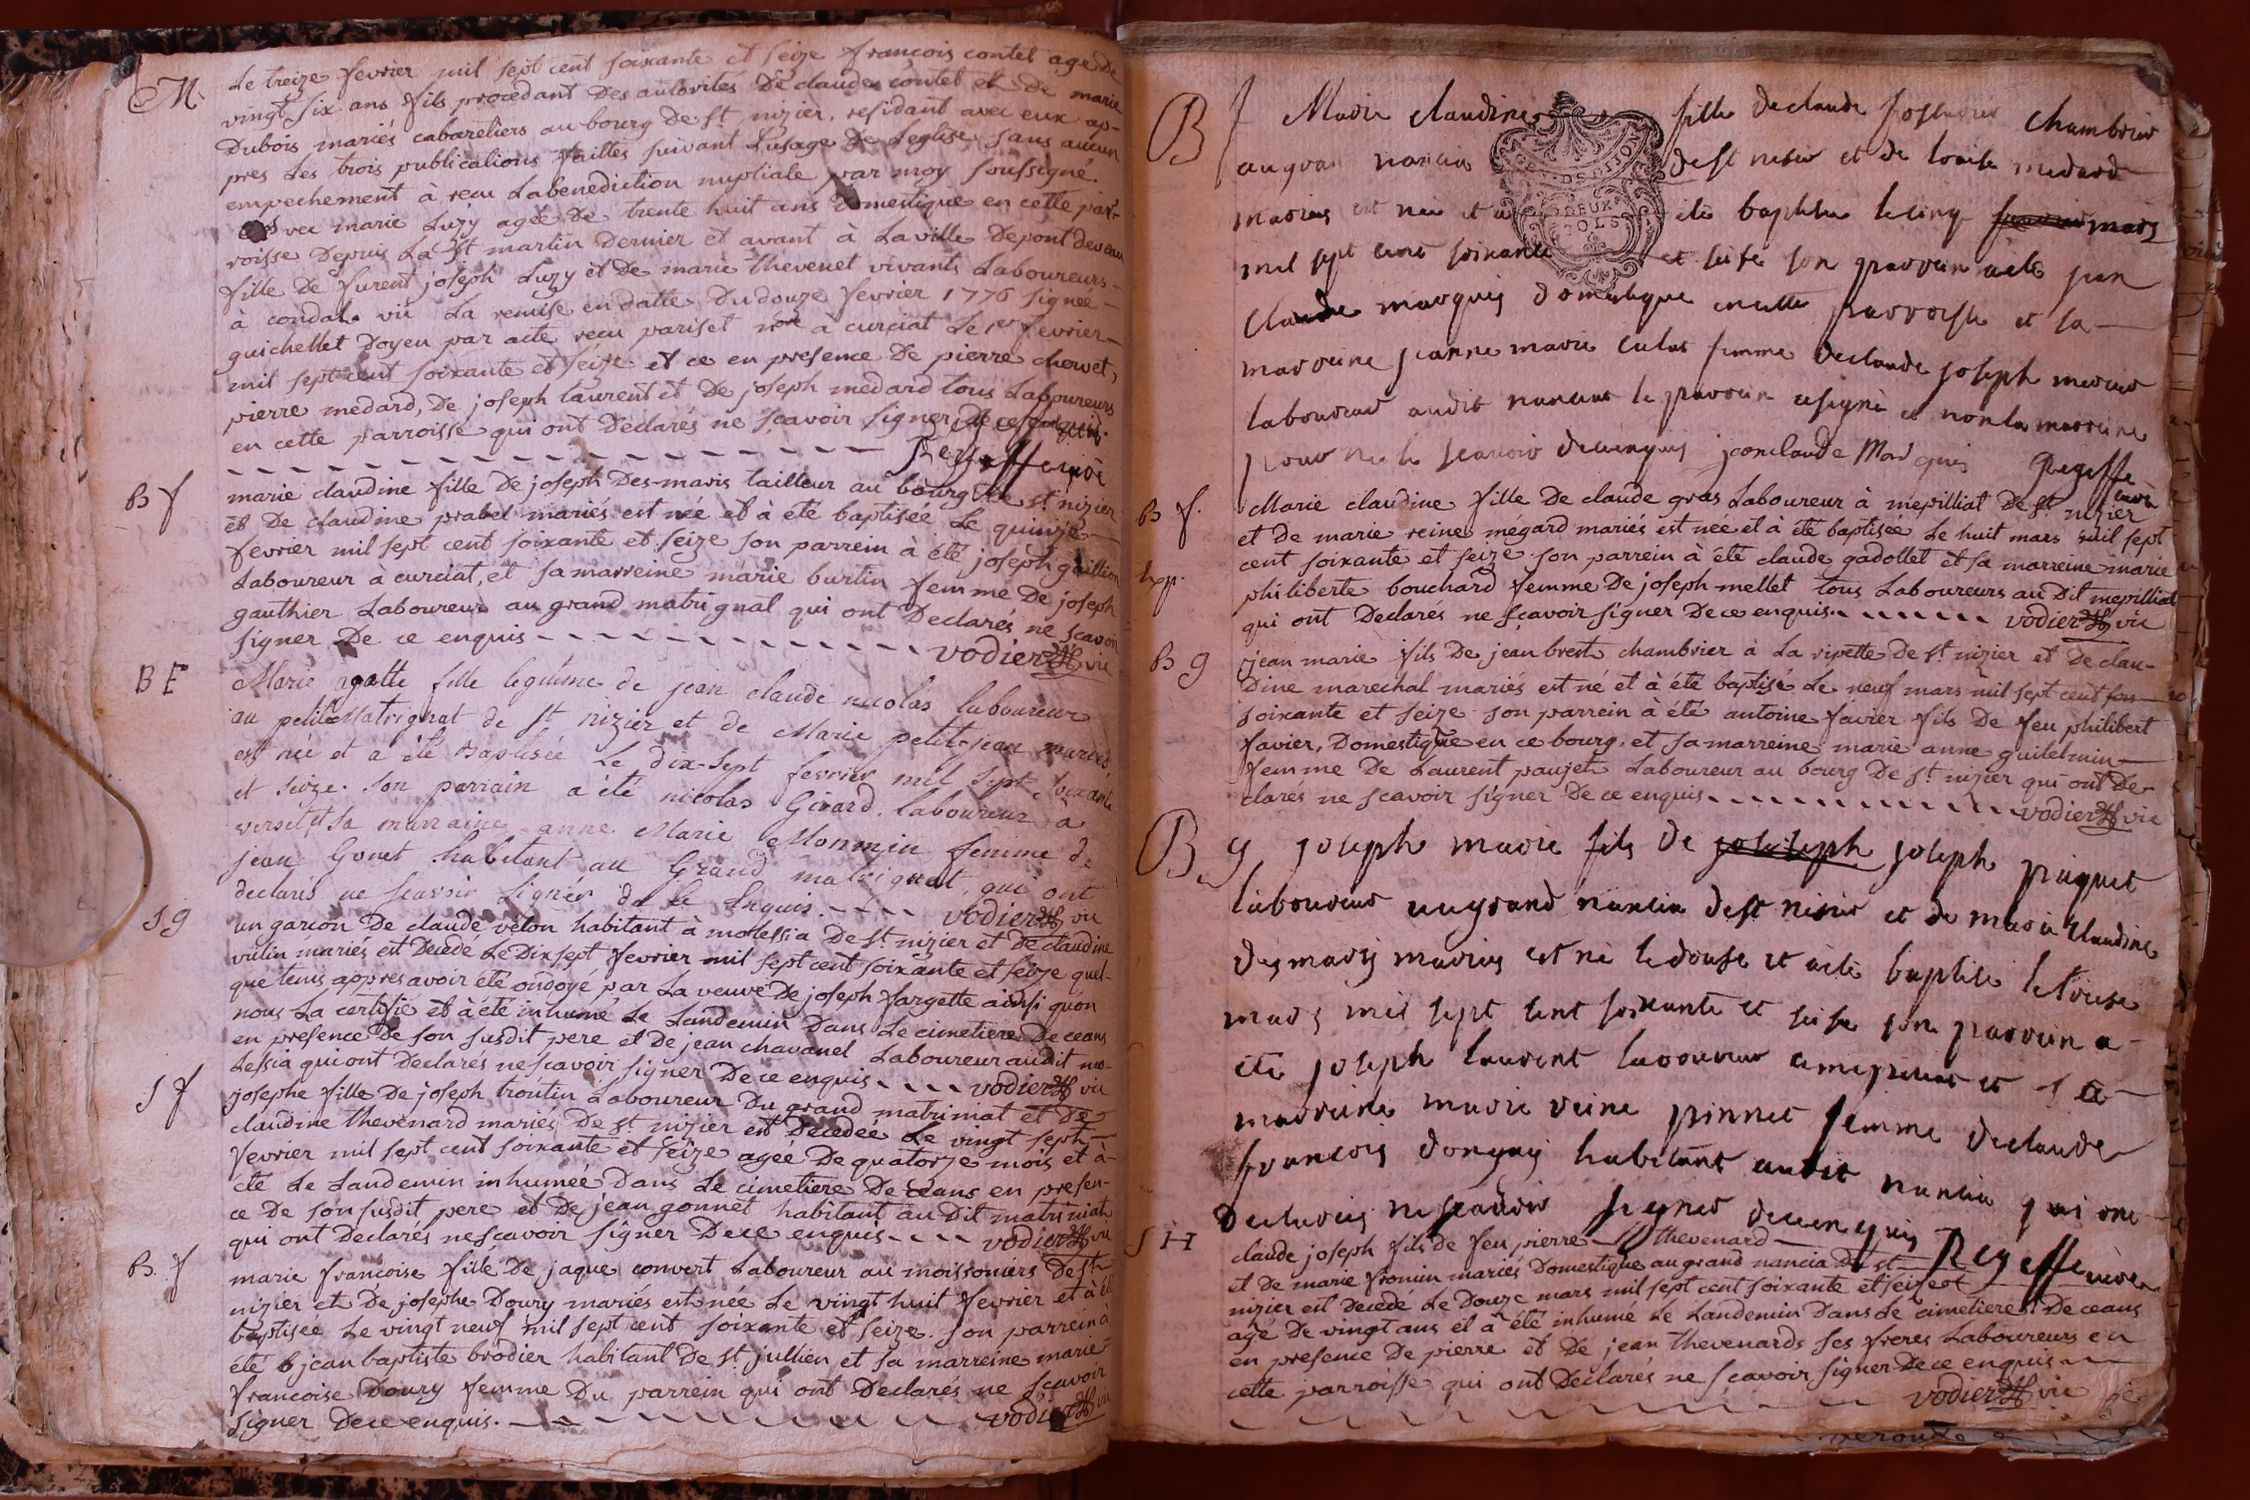 M.
Le treize fevrier mil sept cent soixante et seize françois contet agé de
vingt six ans fils procedant des autorités de claude contet et de marie
Dubois mariés cabaretiers au bourg de st nizier, residant avec eux ap-
pres les trois publications faittes suivant l'usage de l'eglise sans aucun
empechement à recu la benediction nuptiale par moy soussigné.
avec marie Luzy agée de trente huit ans domestique en cette par-
roisse depuis la st martin dernier et avant à la ville de pont devaux
fille de furent joseph Luzy et de marie thevenet vivants Laboureurs
à condal. vü la remise en datte du douze fevrier 1776 signée
guichellet doyen par acte recu pariset nore à curciat le 1er fevrier
mil sept cent soixante et seize et ce en presence de pierre chervet,
pierre medard, de joseph laurent et de joseph medard tous Laboureurs
en cette parroisse qui ont declarés ne scavoir signer de ce enquis.
Reyeffe curé
B f
marie claudine fille de joseph des-maris tailleur au bourg de st nizier
et de claudine prabel mariés est née et à eté baptisée le quinze
fevrier mil sept cent soixante et seize son parrein à été joseph guillion
Laboureur à curciat, et sa marreine marie burtin femme de joseph
gauthier Laboureur au grand matrignat qui ont declarés ne scavoir
signer de ce enquis vodier vic
B F
Marie agatte fille legitime de jean claude nicolas laboureur
au petit Matrignat de st nizier et de Marie petit-jean mariés
est née et a été baptisée le dix-sept fevrier mil sept soixante
et seize. son parrain a été nicolas Girard laboureur à
versel, et sa marraine anne Marie Monmin femme de
jean Gonet habitant au Grand matrignat, qui ont
declarés ne scavoir signer de ce enquis. vodier vic
S g
un garcon de claude velon habitant à molessia de st nizier et de claudine
vulin mariés est decedé le dix sept fevrier mil sept cent soixante et seize quel-
que tems appres avoir été ondoyé par la veuve de joseph fargette ainsi qu'on
nous la certifié et à été inhumé le landemin dans le cimetiere de ceans
en presence de son susdit pere et de jean chavanel Laboureur au dit mo-
lessia qui ont declarés ne scavoir signer de ce enquis vodier vic
S f
josephe fille de joseph troutin Laboureur du grand matrimat et de
claudine thevenard mariés de st nizier est decedée le vingt sept
fevrier mil sept cent soixante et seize agée de quatorze mois et à
eté le landemin inhumée dans le cimetiere de ceans en presen-
ce de son susdit pere et de jean gonnet habitant au dit matrimat
qui ont declarés ne scavoir signer de ce enquis vodier vic
B. f
marie francoise fille de jaque convert Laboureur au moissoniers de st
nizier et de josephe Doury mariés est née le vingt huit fevrier et à été
baptisée le vingt neuf mil sept cent soixante et seize. son parrein à
été jean baptiste brodier habitant de st jullien et sa marreine marie
francoise Doury femme du parrein qui ont declarés ne scavoir
signer de ce enquis. vodier vic
B f
Marie claudine fille de claude chambrier
au gran nancia de st nisier et de louise medard
mariés est née et a été baptisée le cinq fevrier mars
mil sept cent soixante et seise son parrein a été jean
claude marquis domestique en cette parroisse et sa
marreine jeanne marie culas femme de claude joseph mercier
laboureur audit nancia le parrein a signé et non la marreine
pour ne le scavoir de ce enquis jean claude Marquis Reyeffe
curé
B f.
Marie claudine fille de claude gras Laboureur à mepilliat de st nizier
et de marie reine mégard mariés est née et à été baptisée le huit mars mil sept
cent soixante et seize son parrein à été claude gadollet et sa marreine marie
philiberte bouchard femme de joseph mellet tous Laboureurs au dit mepilliat
qui ont declarés ne scavoir signer de ce enquis vodier vic
B g
jean marie fils de jean brest chambrier à la ripette de st nizier et de clau-
dine marechal mariés est né et à été baptisé le neuf mars mil sept cent soi-
soixante et seize son parrein à été antoine favier fils de feu philibert
favier, domestique en ce bourg, et sa marreine marie anne guillelmin
femme de Laurent paujet Laboureur au bourg de st nizier qui ont de-
clarés ne scavoir signer de ce enquis vodier vic
B g
joseph marie fils de joseph joseph piquet
laboureur au grand nancia de st nisier et de marie claudine
desmaris mariés est né le douse et a été baptisé le treise
mars mil sept cent soixante et seise son parrein a
été joseph laurent laboureur a mepillat et sa
marreine marie reine pinnet femme de claude
francois donguy habitant audit nancia qui ont
declarés ne scavoir signer de ce enquis Reyeffe curé
S H
claude joseph fils de feu pierre thevenard
et de marie fromin mariés domestique au grand nancia de st
nizier est decedé le douze mars mil sept cent soixante et seize et
agé de vingt ans et à été inhumé le landemin dans le cimetiere de ceans
en presence de pierre et de jean thevenards ses freres Laboureurs en
cette parroisse qui ont declarés ne scavoir signer de ce enquis
vodier vic